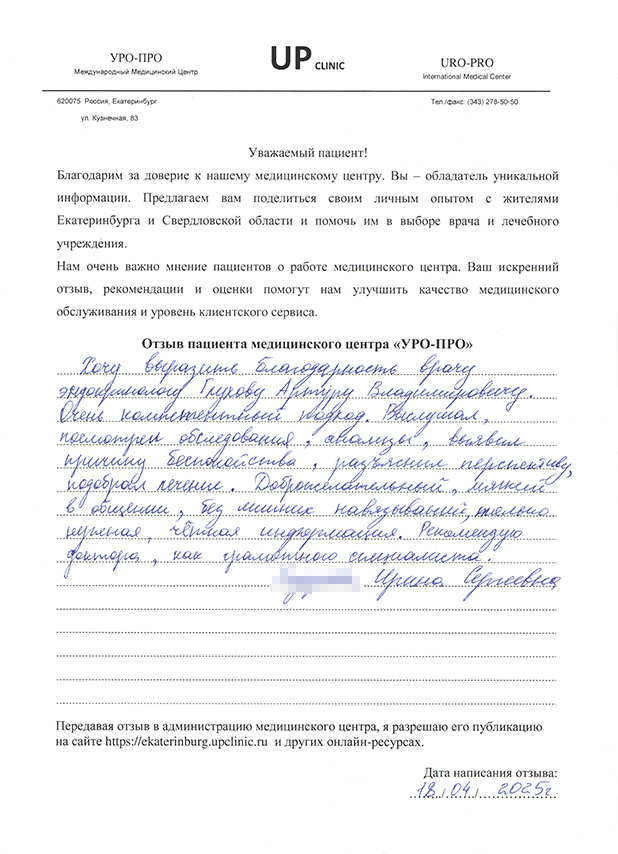 УРО-ПРО
Международный Медицинский Центр
UP CLINIC
URO-PRO
International Medical Center
620075 Россия, Екатеринбург
ул. Кузнечная, 83
Тел./факс: (343) 278-50-50
Уважаемый пациент!
Благодарим за доверие к нашему медицинскому центру. Вы – обладатель уникальной
информации. Предлагаем вам поделиться своим личным опытом с жителями
Екатеринбурга и Свердловской области и помочь им в выборе врача и лечебного
учреждения.
Нам очень важно мнение пациентов о работе медицинского центра. Ваш искренний
отзыв, рекомендации и оценки помогут нам улучшить качество медицинского
обслуживания и уровень клиентского сервиса.
Отзыв пациента медицинского центра «УРО-ПРО»
Хочу выразить благодарность врачу
эндокринологу Глухову Артуру Владимировичу.
Очень компетентный подход. Выслушал,
посмотрел обследования, анализы, выявил
причину беспокойства, разъяснил перспективу,
подобрал лечение. Доброжелательный, мягкий
в общении, без лишних навязываний, только
нужная, чёткая информация. Рекомендую
доктора, как грамотного специалиста.
Ирина Сергеевна
Передавая отзыв в администрацию медицинского центра, я разрешаю его публикацию
на сайте https://ekaterinburg.upclinic.ru и других онлайн-ресурсах.
Дата написания отзыва:
18/04/ 2025г.